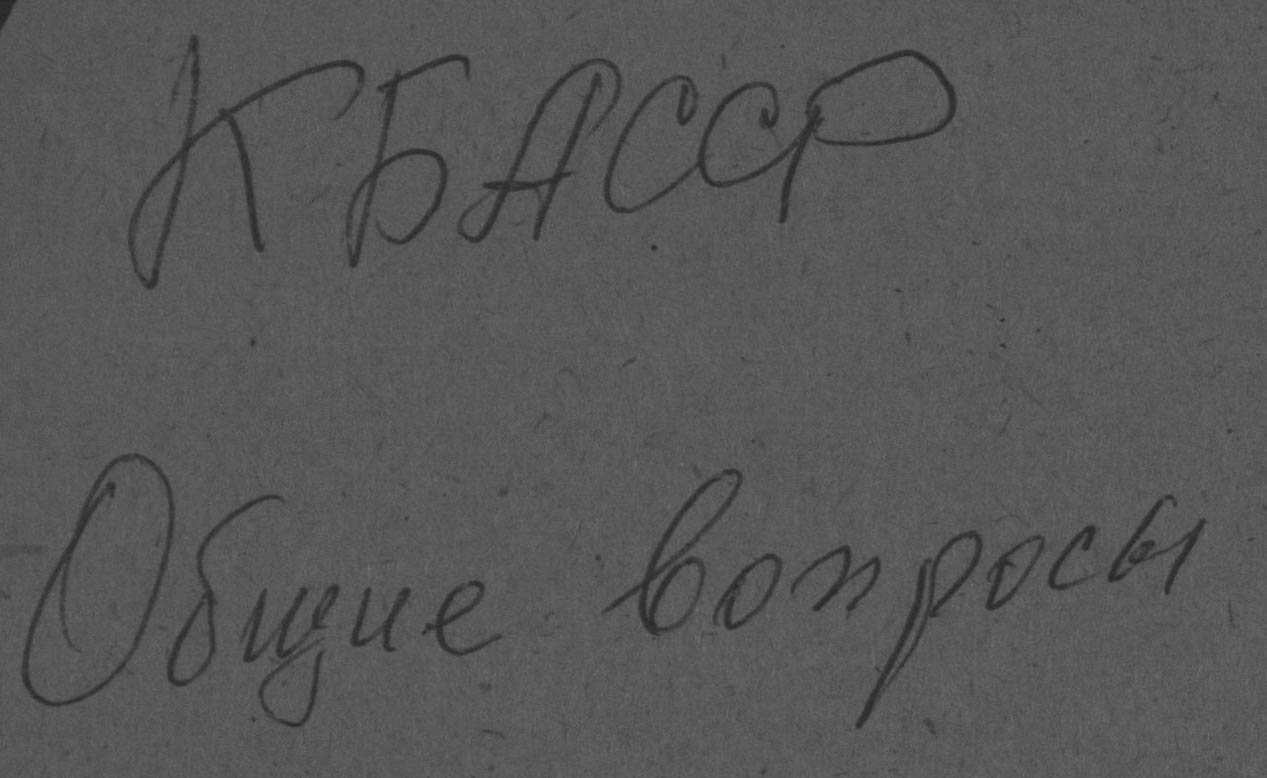 КБАССР
Общие вопросы